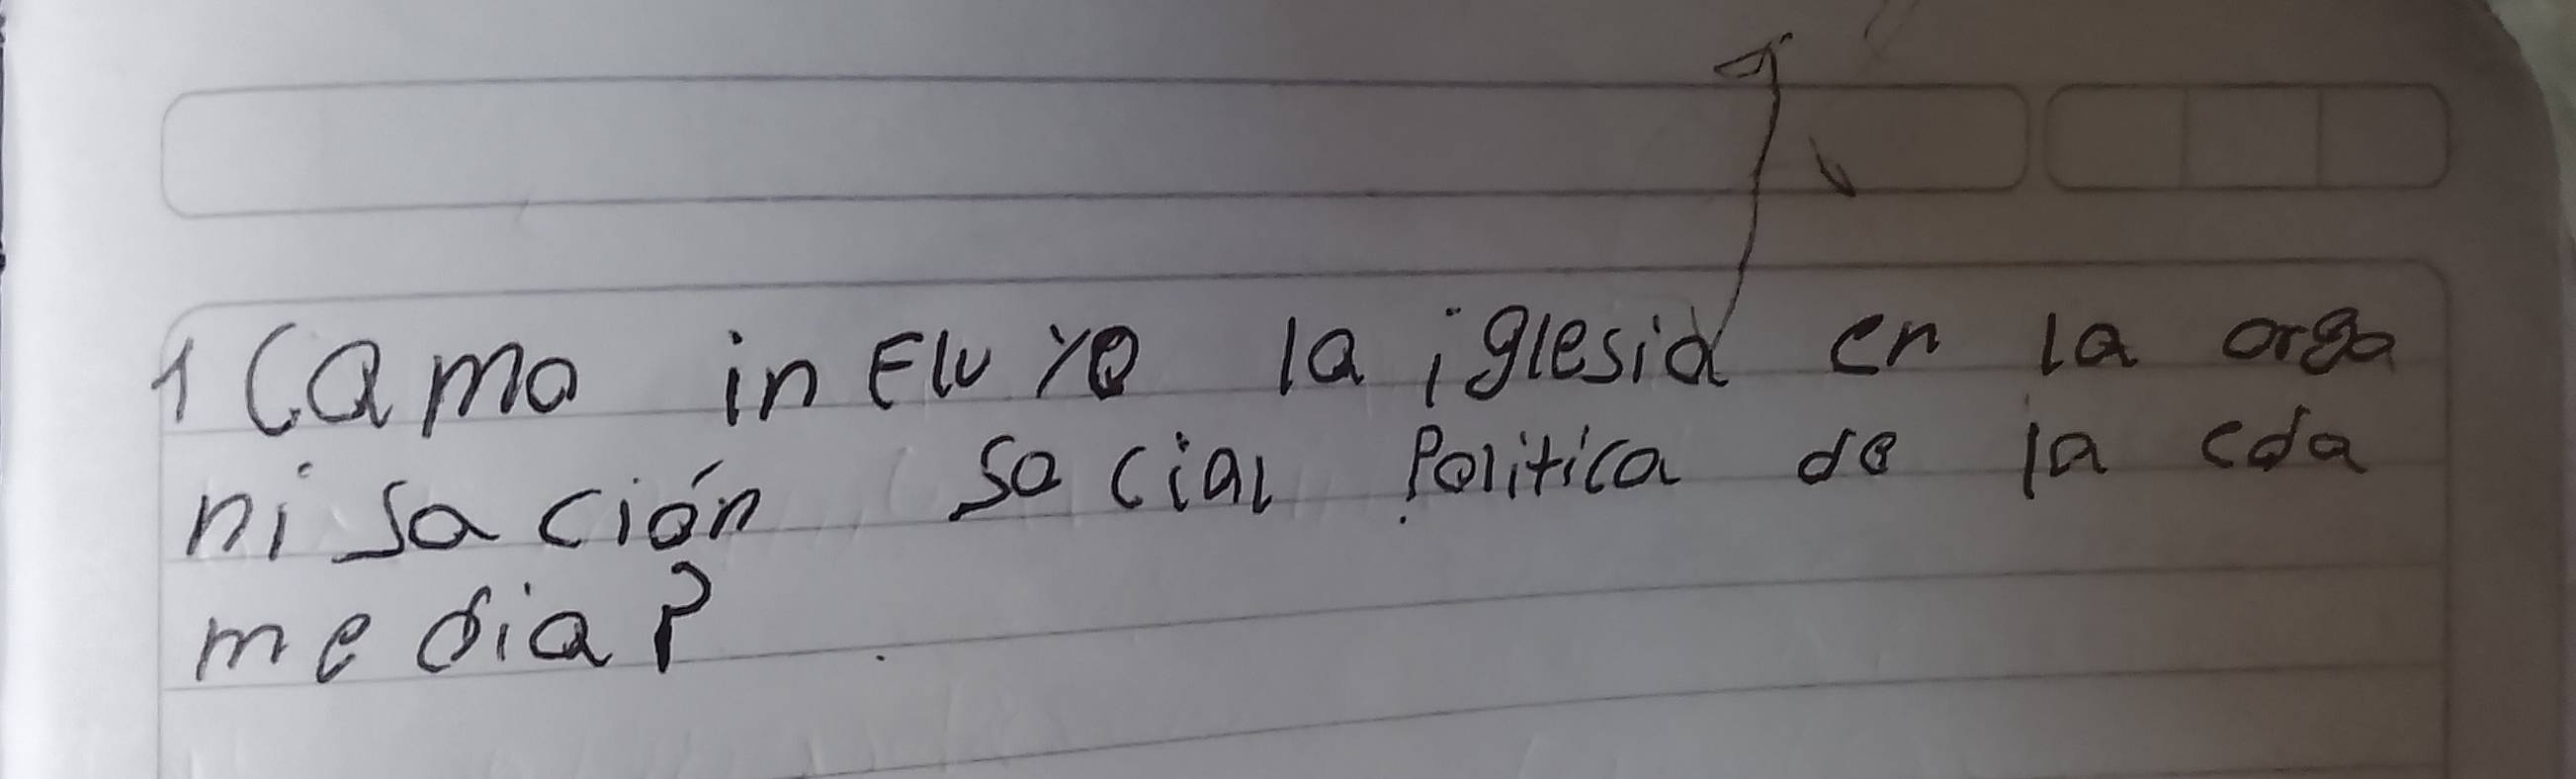 1 Camo influyo la iglesia en la orga
nisación social Politica de la eda
media?